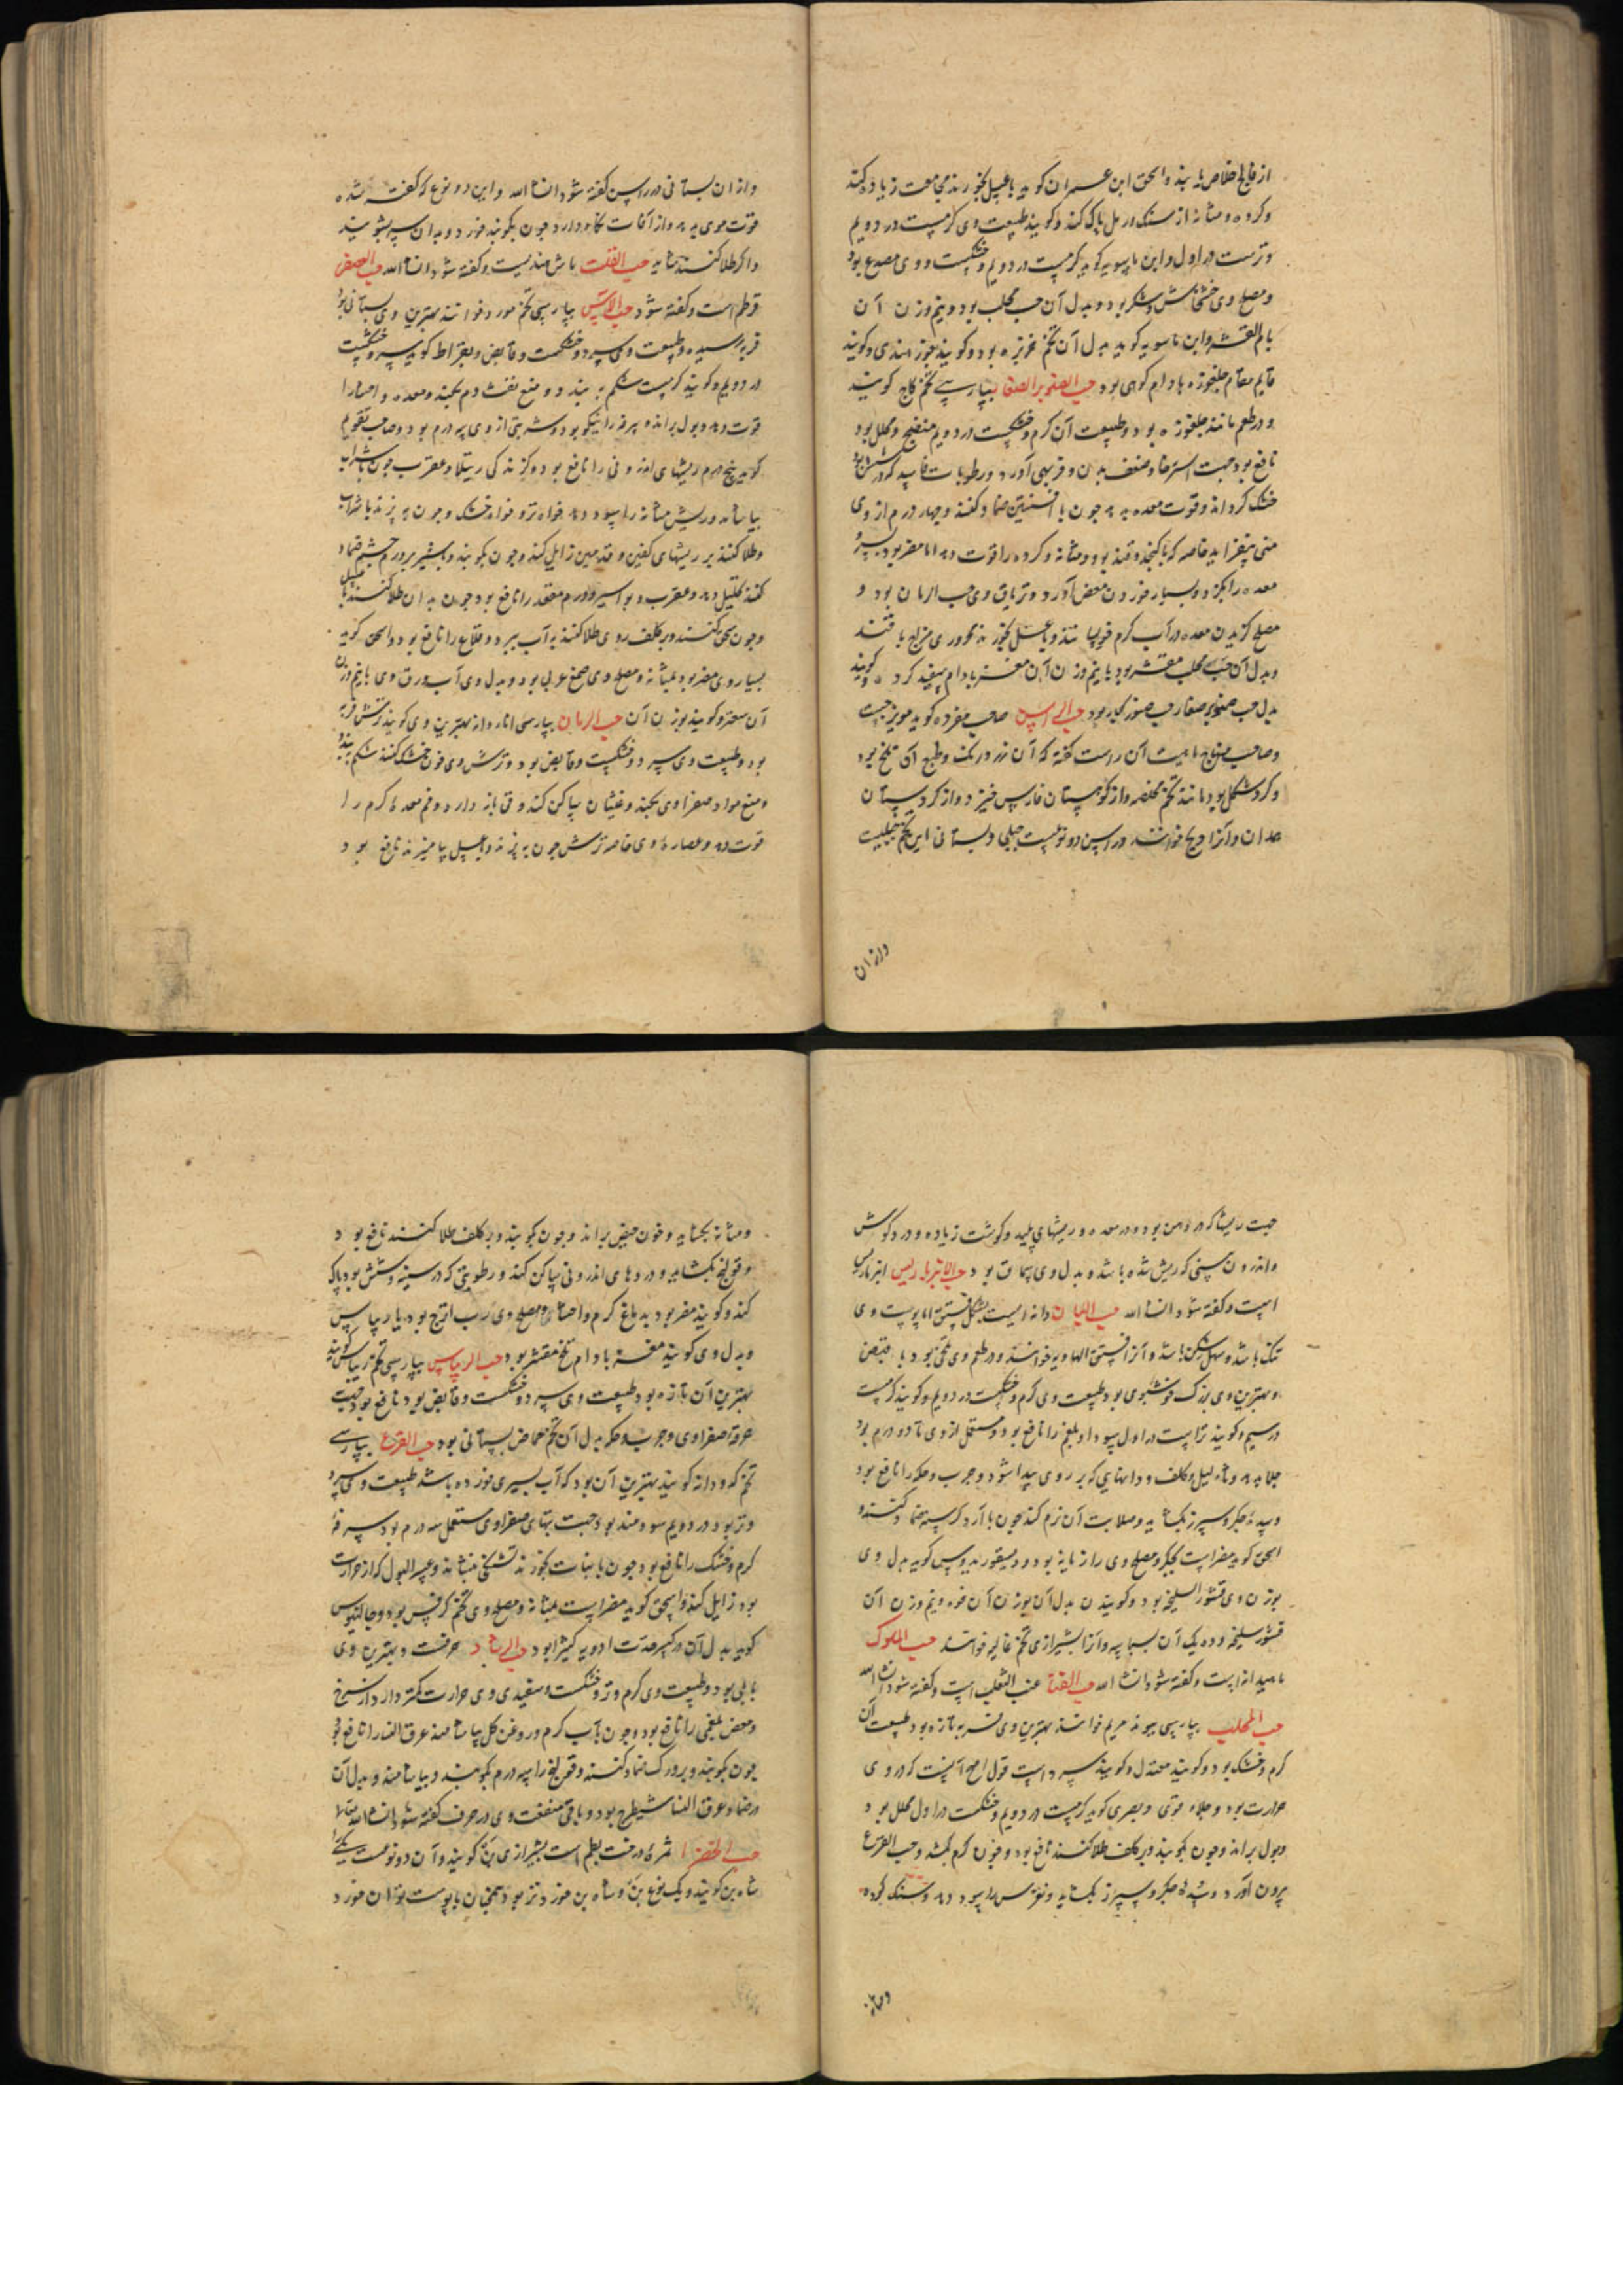 از فالج خلاص یابند و اسحق ابن عمران کوید با عسل بخورند مجامعت زیاده کند
و کرده و مثانه از سنک و رمل پاک کند و کویند طبیعت وی کرمست در دویم
و ترست در اول و ابن ماسویه کوید کرمست در دویم و خشکست و وی مصدع بود
و مصلح وی خشخاش و شکر بود و بدل آن حب محلب بود و نیم وزن آن
بالم القشر و ابن ماسویه کوید بدل آن تخم خربزه بود و کویند جوز هندی و کویند
قایم مقام جلغوزه بادام کوهی بود حب الصنوبر الصغار بپارسی تخم کاج کویند
و در طعم مانند جلغوزه بود و طبیعت آن کرم و خشکست در دویم منضج و محلل بود
نافع بود جهت استرخا و ضعف بدن و فربهی آورد و رطوبات فاسد که در شش بود
خشک کرداند و قوت معده بدهد چون با افسنتین ضماد کنند و چهار درم از وی
منی بیفزاید خاصه که با کنجد و قند بود و مثانه و کرده را قوت دهد اما مضر بود بسر
معده را بکزد و بسیار خوردن مغص آورد و تریاق وی حب الرمان بود و
مصلح کزیدن معده در آب کرم خویسانند و با عسل بخورند محروری مزاج با قند
و بدل آن حب محلب مقشر بود با نیم وزن آن مغز بادام سفید کرده و کویند
بدل حب صنوبر صغار حب صنوبر کبار بود حب الراسن صاحب مفرده کوید مویزجست
و صاحب منهاج ماهیت آن راست کفته که آن زرد رنک و طبع آن تلخ بود
و کرد شکل بود مانند تخم مخلصه و از کوهستان فارس خیزد و از کردستان
همدان و آنرا ویج خوانند و راسن دو نوعست جبلی و بستانی این تخم جبلیست
وازان
وازان بستانی در راسن کفته شود انشاالله و این دو نوع که کفته شده
قوت موی بدهد و از آفات نکاه دارد چون بکوبند خورد و بدان سر بشویند
و اکر طلا کنند همانا حب القلت ماش هندیست و کفته شود انشاالله حب العصفر
قرطم است و کفته شود حب الآس بپارسی تخم مورد خوانند بهترین وی بستانی بود
فربه رسیده و طبیعت وی سرد و خشکست و قابض و بقراط کوید سرد و خشکست
در دویم و کویند کرمست شکم ببندد و منع نفث دم بکند و معده و امعا را
قوت دهد و بول براند و سرفه را نیکو بود و شربتی از وی سه درم بود و صاحب تقویم
کوید پنج درم ریشهای اندرونی را نافع بود و کزندکی رتیلا و عقرب چون با شراب
بیاشامند و ریش مثانه را سود دهد خواه تر و خواه خشک و چون بپزند با شراب
و طلا کنند بر ریشهای کفین و قدمین زایل کند و چون بکوبند و بشیر بر ورم چشم ضماد
کنند تحلیل دهد و عقرب و بواسیر و ورم مقعد را نافع بود چون بدان طلا کنند با عسل
و چون سحق کنند و بر کلف روی طلا کنند به آب ببرد و قلاع را نافع بود و اسحق کوید
بسیار وی مضر بود بمثانه و مصلح وی صمغ عربی بود و بدل وی آب ورق وی با نیم وزن
آن سعتر و کویند بوزن آن حب الرمان بپارسی انار دانه بهترین وی کویند ترش فربه
بود و طبیعت وی سرد و خشکست و قابض بود و ترش وی خون خشک کند شکم ببندد
و منع مواد صفراوی بکند و غثیان ساکن کند و قی باز دارد و فم معده کرم را
قوت دهد و عصاره وی خاصه ترش چون بپزند و با عسل بیامیزند نافع بود
جهت ریشها که در دهن بود و در معده و ریشهای پلید و کوشت زیاده و درد کوش
و اندرون بینی که ریش شده باشد و بدل وی سماق بود حب الانبرباریس انبرباریس
است و کفته شود انشاالله حب البان دانه ایست بشکل فستق اما پوست وی
تنک باشد و سهل شکن باشد و آنرا فستق الهاویه خوانند و در طعم وی تلخی بود با قبض
و بهترین وی بزرک خوشبوی بود طبیعت وی کرم و خشکست در دویم و کویند کرمست
در سیم و کویند تراست در اول سودا و بلغم را نافع بود و مستعمل از وی تا دو درم بود
جلا بدهد و ثالیل و کلف و دانهای که بر روی پیدا شود و جرب و حکه را نافع بود
و سده جکر و سپرز بکشاید و صلابت آن نرم کند چون با آرد کرسنه ضماد کنند و
اسحق کوید مضر است بجکر و مصلح وی رازیانه بود و دیسقوریدوس کوید بدل وی
بوزن وی قشور السلیخه بود و کویند بدل آن بوزن آن فوه و نیم وزن آن
قشور سلیخه و ده یک آن بسباسه و آنرا بشیرازی تخم غالیه خوانند حب الملوک
ماهیدانه است و کفته شود انشاالله حب القنا عنب الثعلب است و کفته شود انشاالله
حب المحلب بپارسی پیوند مریم خوانند بهترین وی فربه تازه بود طبیعت آن
کرم و خشک بود و کویند معتدل و کویند سرد است قول اصح آنست که در وی
حرارت بود و جلاء قوی و بصری کوید کرمست در دویم و خشکست در اول محلل بود
و بول براند و چون بکوبند و بر کلف طلا کنند نافع بود و چون کرم بکشد و حب القرع
بیرون آورد و سده جکر و سپرز بکشاید و نقرس را سود دهد و سنک کرده
ومثانه
و مثانه بکشاید و خون حیض براند و چون بکوبند و بر کلف طلا کنند نافع بود
و قولنج بکشاید و دردهای اندرونی ساکن کند و رطوبتی که در سینه و شش بود پاک
کند و کویند مضر بود بدماغ کرم و احشا و مصلح وی رب اترج بود یا ریباس
و بدل وی کویند مغز بادام تلخ مقشر بود حب الریباس بپارسی تخم ریباس کویند
بهترین آن تازه بود طبیعت وی سرد و خشکست و قابض بود نافع بود جهت
حرقه صفراوی و جرب و حکه بدل آن تخم حماض بستانی بود حب القرع بپارسی
تخم کدو دانه کویند بهترین آن بود که آب بسیری خورده باشد طبیعت وی سرد
و تر بود در دویم سودمند بود جهت تبهای صفراوی مستعمل سه درم بود سرفه
کرم و خشک را نافع بود چون با نبات بخورند تشنکی بنشاند و عسر البول که از حرارت
بود زایل کند و اسحق کوید مضر است بمثانه و مصلح وی تخم کرفس بود و جالینوس
کوید بدل آن در کسر حدت ادویه کتیرا بود حب الرشاد حرفست و بهترین وی
بابلی بود و طبیعت وی کرم و تر و خشکست و سفیدی وی حرارت کمتر دارد از سرخ
و مغص بلغمی را نافع بود و چون بآب کرم و روغن کل بیاشامند عرق النسا را نافع بود
چون بکوبند و بر ورک ضماد کنند و قولنج را سه درم بکوبند و بیاشامند و بدل آن
در ضماد عرق النسا شیطرج بود و باقی منفعت وی در حرف کفته شود انشاالله تعالا
حب الخضرا ثمره درخت بطم است بشیرازی بن کویند و آن دو نوعست یکی را
شاه بن کویند و یک نوع بن و شاه بن خوردتر بود همچنان با پوست بتوان خورد